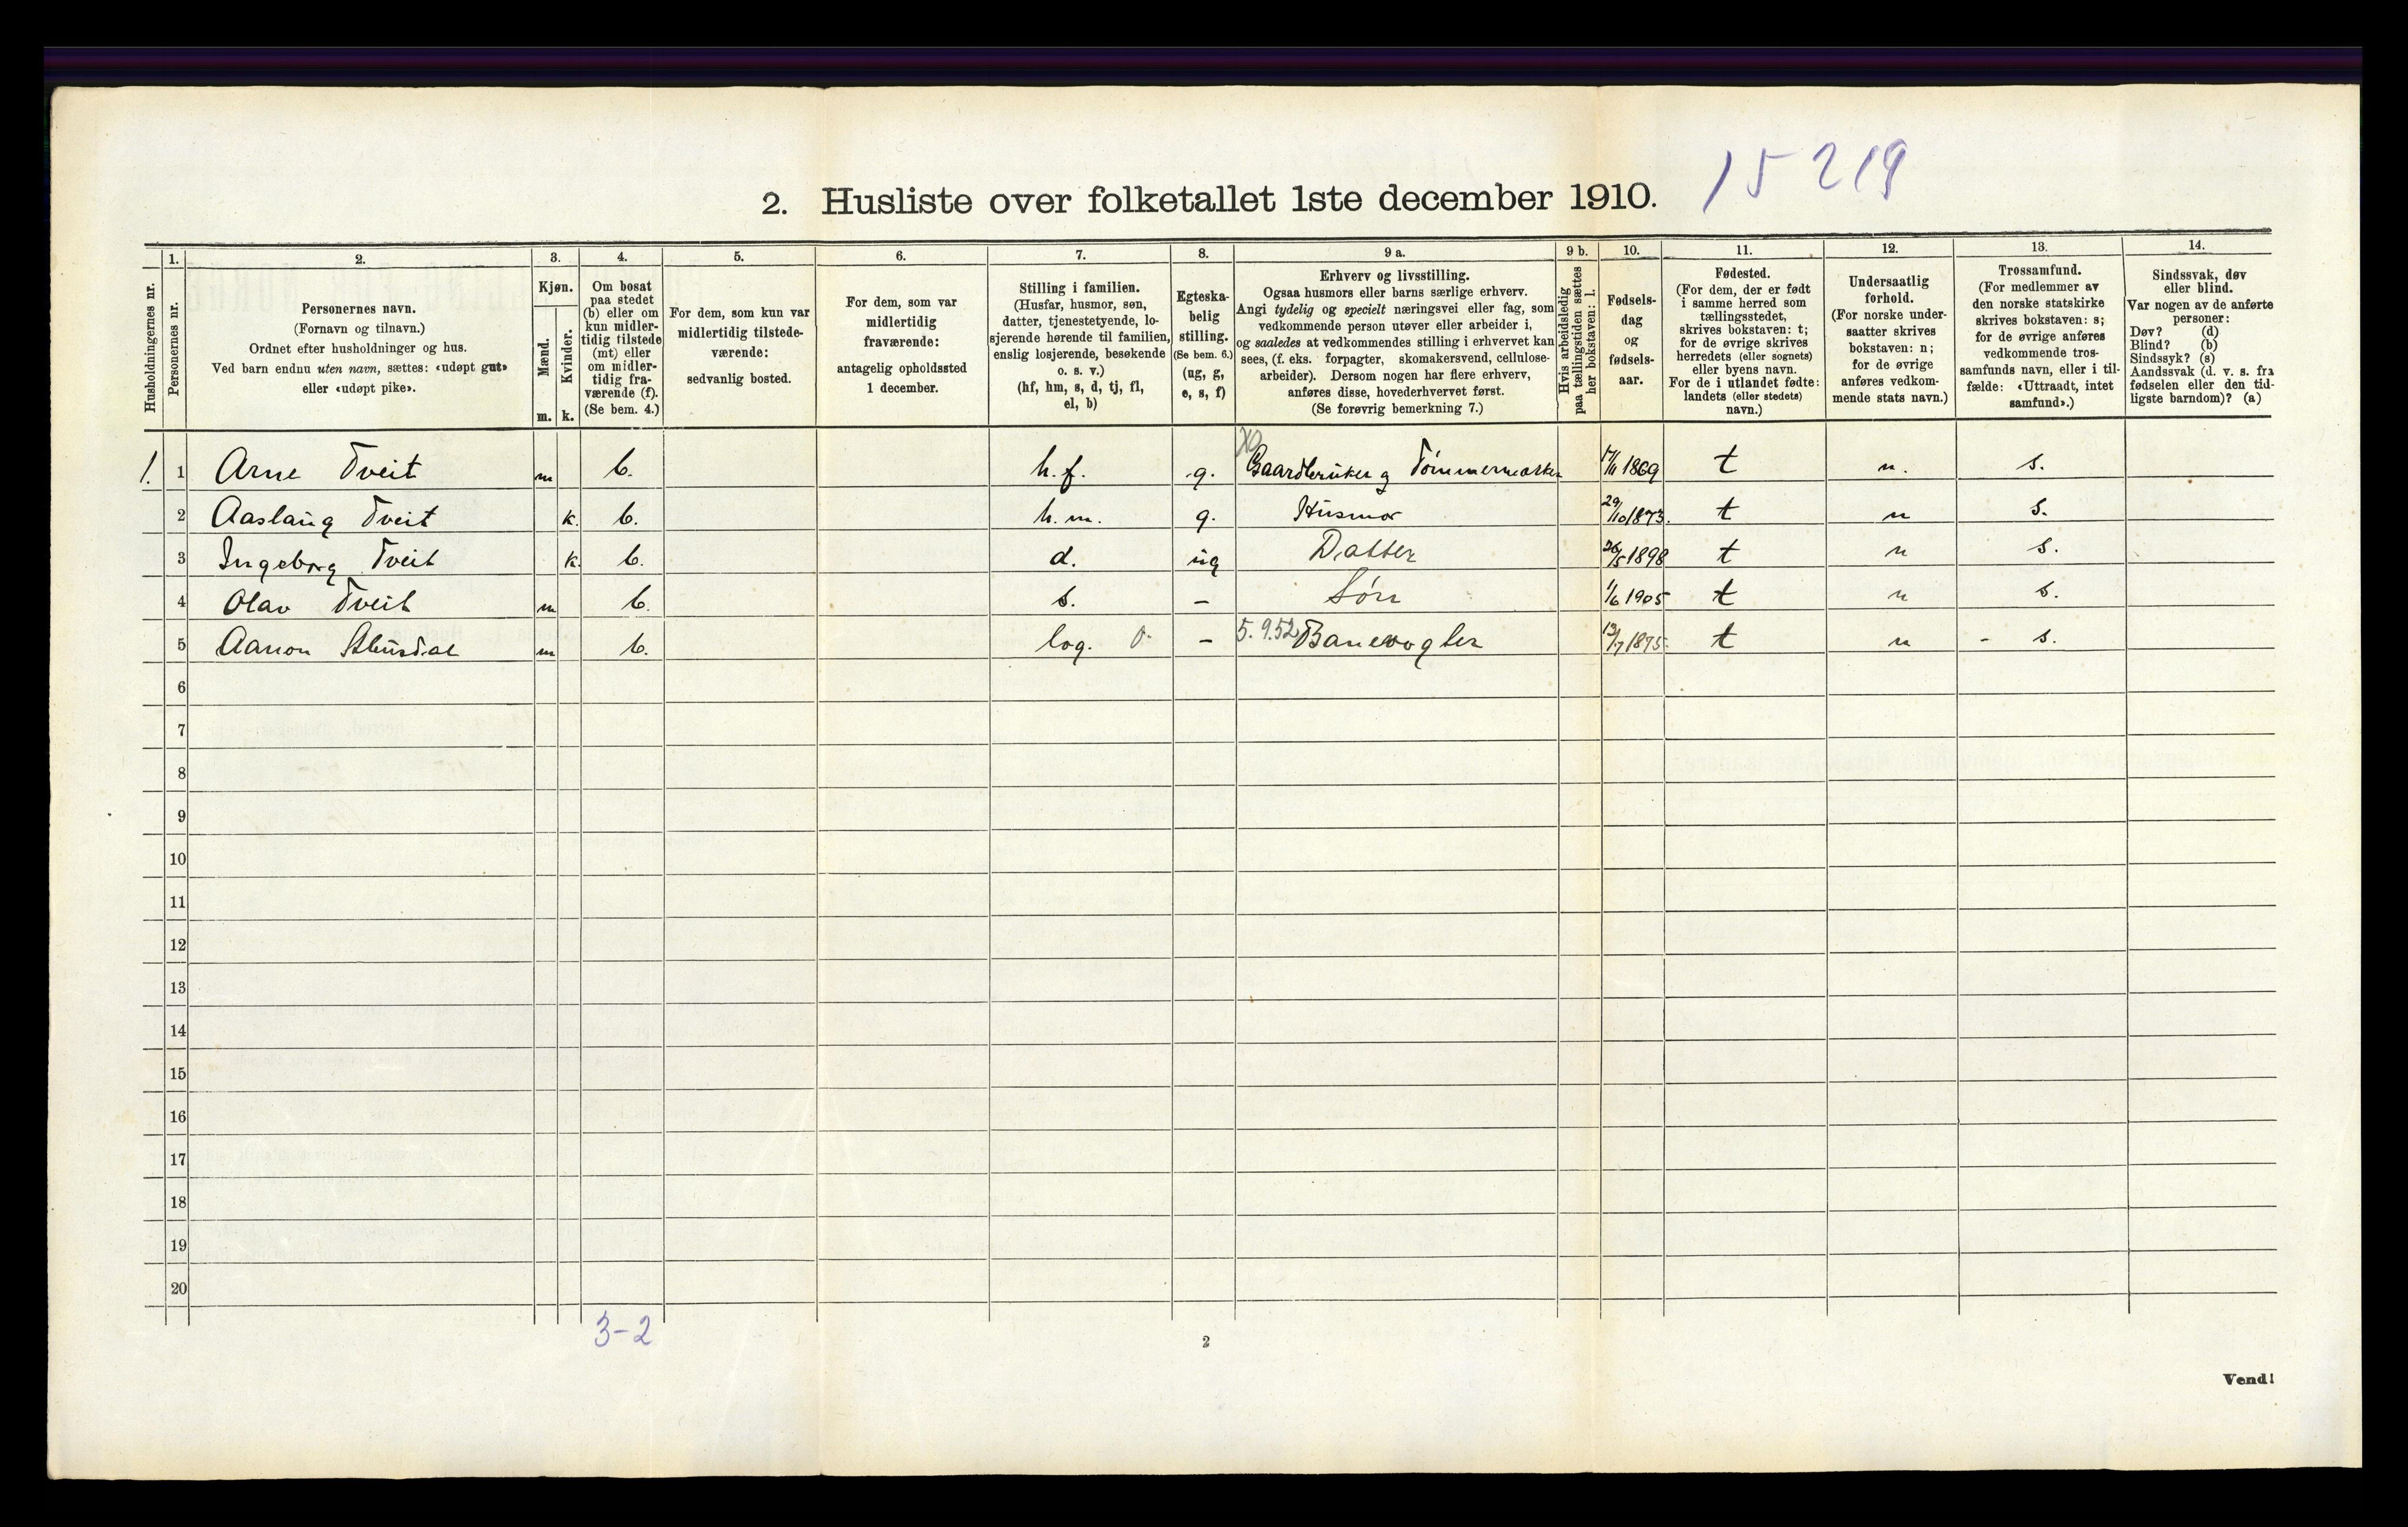 15219
2. Husliste over folketallet 1ste december 1910.
Husholdningernes nr.
1.
Personernes nr.
2.
Personernes navn.
(Fornavn og tilnavn.)
Ordnet efter husholdninger og hus.
Ved barn endnu uten navn, sættes: «udøpt gut»
eller «udøpt pike».
3.
Kjøn.
Mænd.
m.
Kvinder.
k.
4.
Om bosat
paa stedet
(b) eller om
kun midler-
tidig tilstede
(mt) eller
om midler-
tidig fra-
værende (f).
(Se bem. 4.)
5.
For dem, som kun var
midlertidig tilstede-
værende:
sedvanlig bosted.
6.
For dem, som var
midlertidig
fraværende:
antagelig opholdssted
1 december.
7.
Stilling i familien.
(Husfar, husmor, søn,
datter, tjenestetyende, lo-
sjerende hørende til familien,
enslig losjerende, besøkende
o. s. v.)
(hf, hm, s, d, tj, fl,
el, b)
8.
Egteska-
belig
stilling.
(Se bem. 6.)
(ug, g,
e, s, f)
9 a.
Erhverv og livsstilling.
Ogsaa husmors eller barns særlige erhverv.
Angi tydelig og specielt næringsvei eller fag, som
vedkommende person utøver eller arbeider i,
og saaledes at vedkommendes stilling i erhvervet kan
sees, (f. eks. forpagter, skomakersvend, cellulose-
arbeider). Dersom nogen har flere erhverv,
anføres disse, hovederhvervet først.
(Se forøvrig bemerkning 7.)
9 b.
Hvis arbeidsledig
paa tællingstiden sættes
her bokstaven: l.
10.
Fødsels-
dag
og
fødsels-
aar.
11.
Fødested.
(For dem, der er født
i samme herred som
tællingsstedet,
skrives bokstaven: t;
for de øvrige skrives
herredets (eller sognets)
eller byens navn.
For de i utlandet fødte:
landets (eller stedets)
navn.)
12.
Undersaatlig
forhold.
(For norske under-
saatter skrives
bokstaven: n;
for de øvrige
anføres vedkom-
mende stats navn.)
13.
Trossamfund.
(For medlemmer av
den norske statskirke
skrives bokstaven: s;
for de øvrige anføres
vedkommende tros-
samfunds navn, eller i til-
fælde: «Uttraadt, intet
samfund».)
14.
Sindssvak, døv
eller blind.
Var nogen av de anførte
personer:
Døv? (d)
Blind? (b)
Sindssyk? (s)
Aandssvak (d. v. s. fra
fødselen eller den tid-
ligste barndom)? (a)
1. 1 Arne Tveit m b. h.f. g. Gaardbruker og Tömmermærker 1869 t n. s.
2 Aaslaug Tveit k. b. h.m. g. Husmor 29/10 1873. t n s.
3 Ingeborg Tveit k. b. d. ug Datter 26/5 1898 t n s.
4 Olav Tveit m b. s. – Sön 1/6 1905 t n s.
5 Aanon m b. log. 0. – 5.9.52 Banevogter 13/7 1875. t n - s.
6
7
8
9
10
11
12
13
14
15
16
17
18
19
20
3-2
2
Vend!